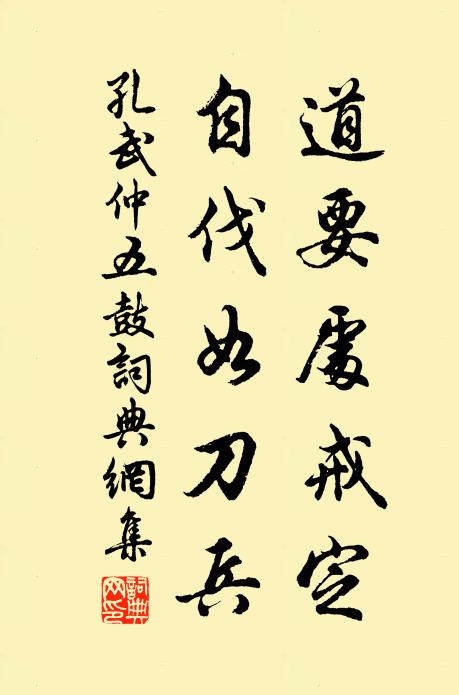 道要處戒定
自伐如刀兵
孔武仲五鼓詞典網集
詞典
网印